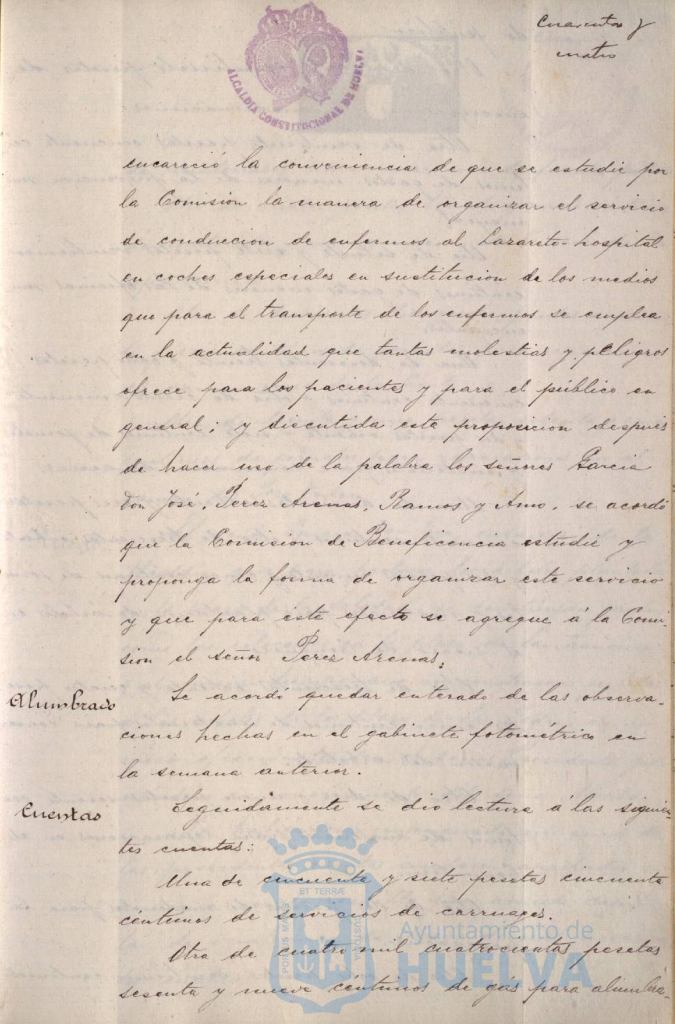 Cuarenta y
cuatro
ALCALDIA CONSTITUCIONAL DE HUELVA
encareció la conveniencia de que se estudie por
la Comision la manera de organizar el servicio
de conduccion de enfermos al Lazareto-hospital
en coches especiales en sustitucion de los medios
que para el transporte de los enfermos se emplea
en la actualidad que tantas molestias y peligros
ofrece para los pacientes y para el público en
general; y discutida este proposicion despues
de hacer uso de la palabra los señores Garcia
Don José, Perez Arenas, Ramos y Amo, se acordó
que la Comision de Beneficencia estudie y
proponga la forma de organizar este servicio
y que para este efecto se agregue á la Comi-
sion el señor Perez Arenas.
Alumbrado
Se acordó quedar enterado de las observa-
ciones hechas en el gabinete fotométrico en
la semana anterior.
Cuentas
Seguidamente se dió lectura á las siguien-
tes cuentas:
Una de cincuenta y siete pesetas cincuenta
céntimos de servicios de carruages.
Otra de cuatro mil cuatrocientas pesetas
sesenta y nueve céntimos de gás para alumbra-
PORTUS MARIS ET TERRÆ CUSTODIA
Ayuntamiento de
HUELVA